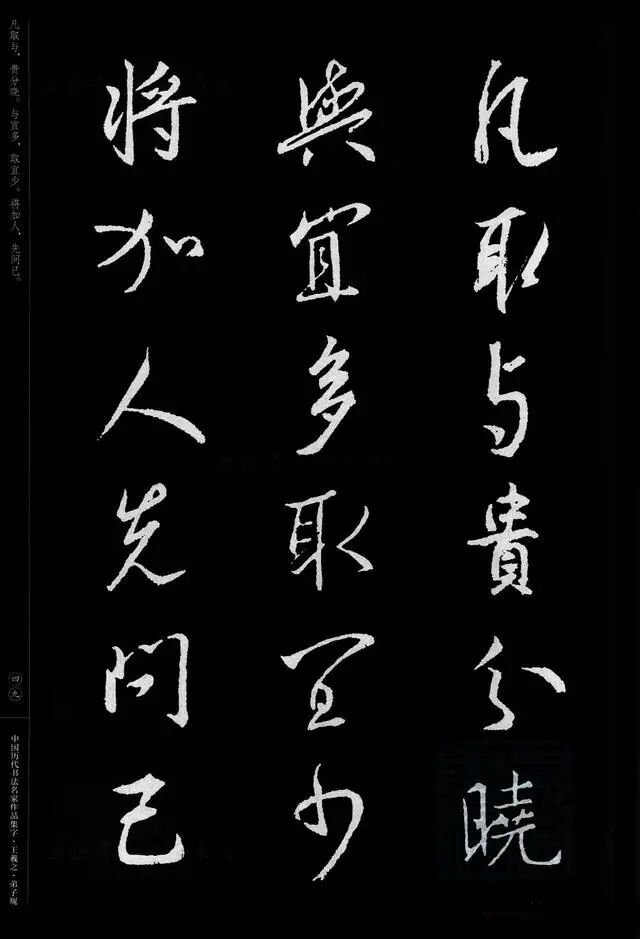 凡取与貴分曉
與宜多取宜少
将加人先問己
凡取与、貴分晓。与宜多、取宜少。将加人、先问己。
四九
中国历代书法名家作品集字·王羲之·弟子规